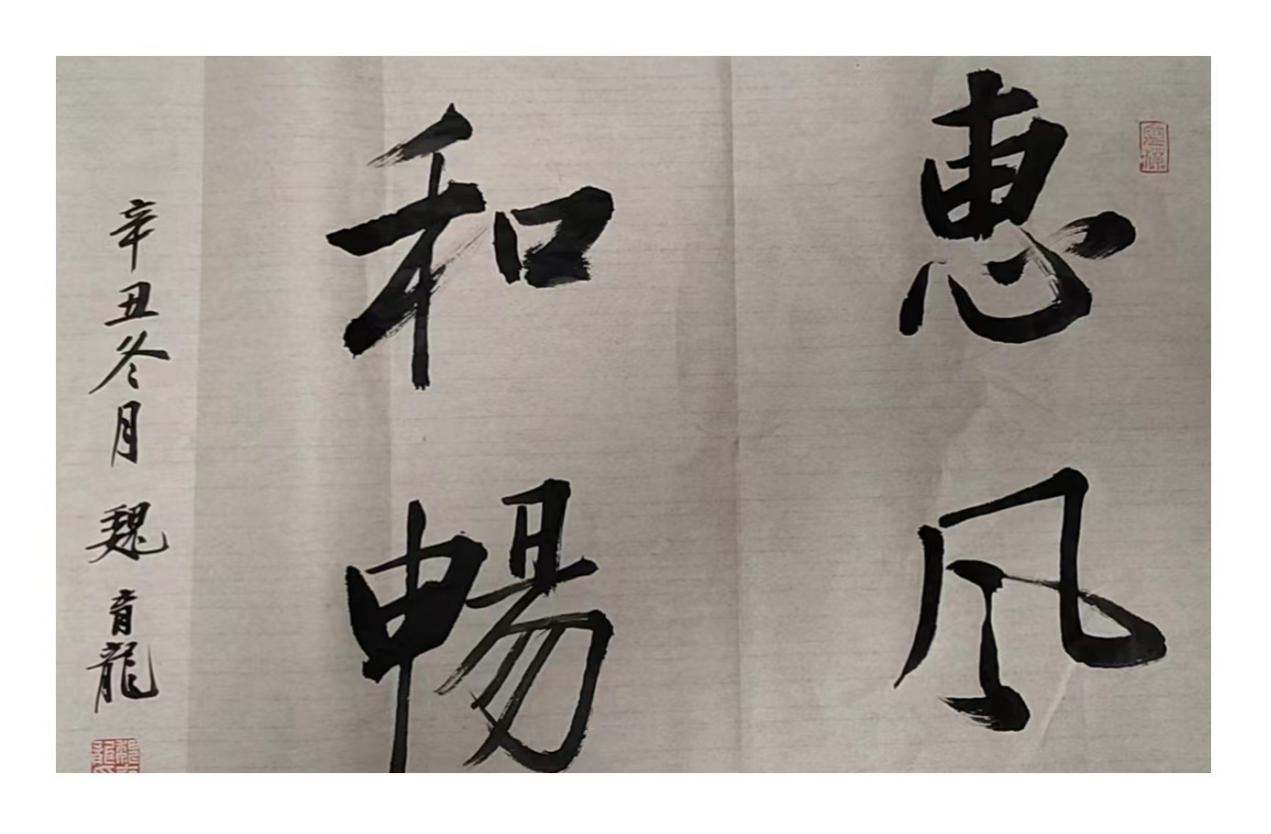 惠风
和畅
辛丑冬月 魏育龍